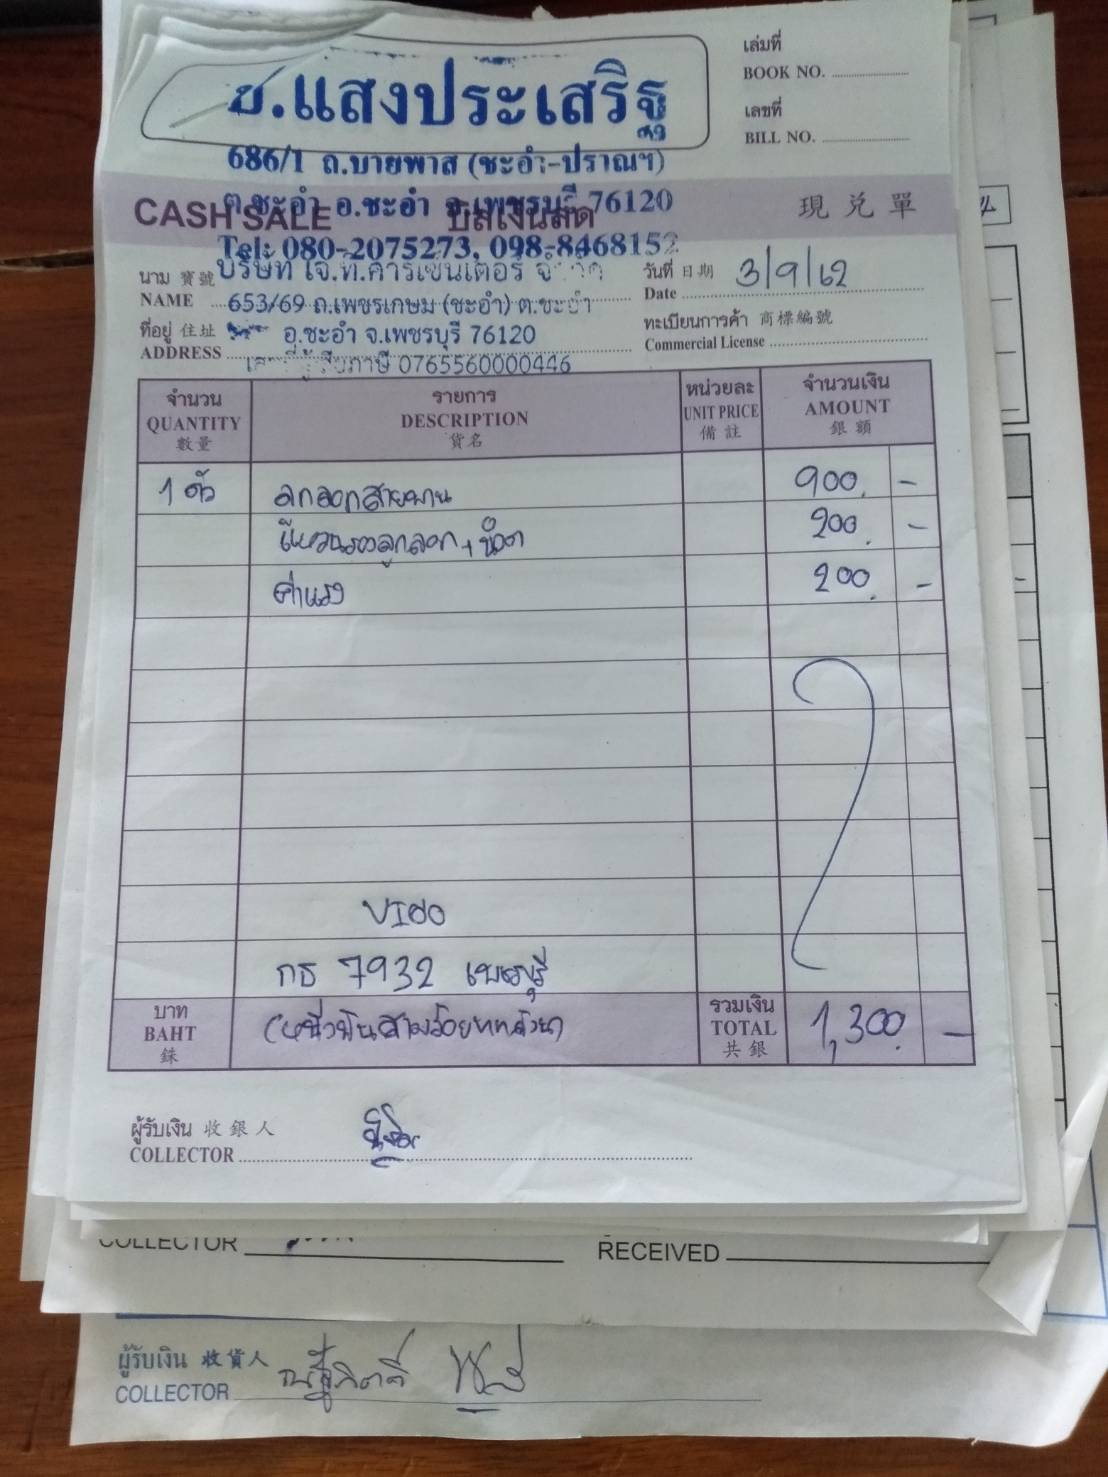 เล่มที่
BOOK NO.
เลขที่
BILL NO.
ช.แสงประเสริฐ
686/1 ถ.บายพาส (ชะอำ-ปราณฯ)
ต.ชะอำ อ.ชะอำ จ.เพชรบุรี 76120
CASH SALE บิลเงินสด 現兌單
Tel: 080-2075273, 098-8468152
นาม 寶號 บริษัท เจ.ที.คาร์เซ็นเตอร์ จำกัด
NAME 653/69 ถ.เพชรเกษม (ชะอำ) ต.ชะอำ
วันที่ 日期 3/9/62
Date
ที่อยู่ 住址 อ.ชะอำ จ.เพชรบุรี 76120
ADDRESS
เลขที่ผู้เสียภาษี 0765560000446
ทะเบียนการค้า 商標編號
Commercial License
จำนวน รายการ หน่วยละ จำนวนเงิน
QUANTITY DESCRIPTION UNIT PRICE AMOUNT
數量 貨名 備註 銀額
1 ตัว ลูกลอกสายพาน 900 -
แหวนรองลูกลอก + น๊อต 200 -
ค่าแรง 200 -
VIGO
กธ 7932 เพชรบุรี
บาท (หนึ่งพันสามร้อยบาทถ้วน) รวมเงิน 1,300 -
BAHT TOTAL
銖 共銀
ผู้รับเงิน 收銀人
COLLECTOR
COLLECTOR
RECEIVED
ผู้รับเงิน 收貨人
COLLECTOR